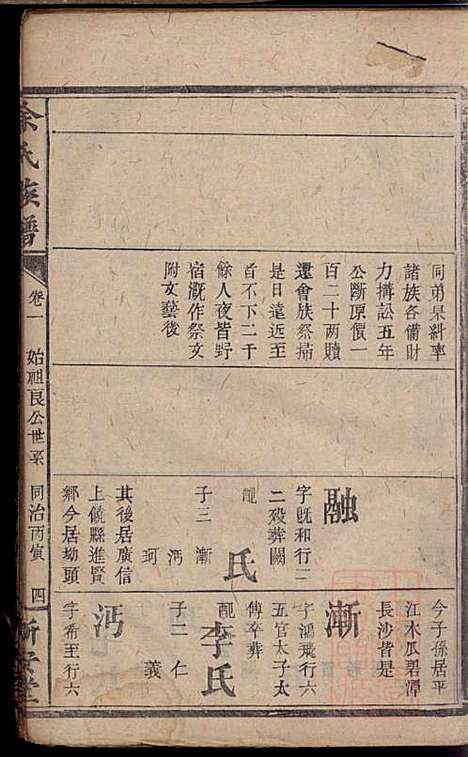 同弟杲糾率
諸族各備財
力搆訟五年
公斷原價一
百二十兩贖
還會族祭掃
是日遠近至
者不下二千
餘人夜皆野
宿溉作祭文
附文藝後
融
字既和行二
二歿葬闕
配
氏
子三
漸
沔
珂
其後居廣信
上饒縣進賢
鄉今居坳頭
今子孫居平
江木瓜碧潭
長沙皆是
漸
字鴻飛行六
五官太子太
傅卒葬
配
李氏
子二
仁
義
沔
字希至行六
余氏族譜
卷一
始祖良公世系
同治丙寅
四
新安堂